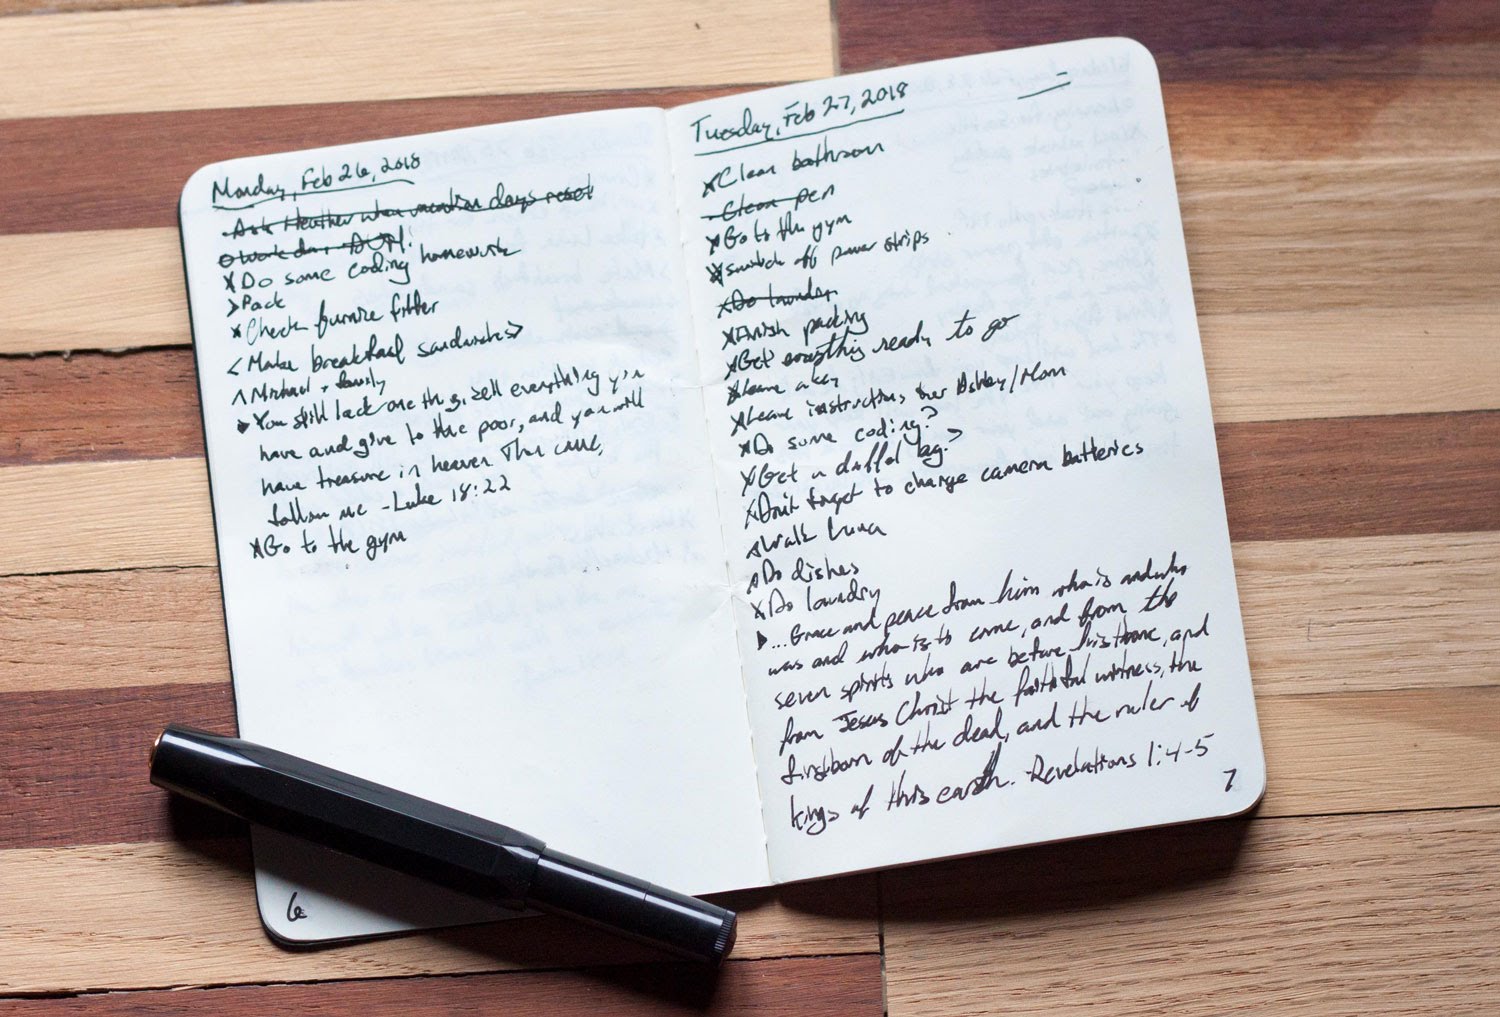 Monday, Feb 26, 2018
- Ask Heather when vacation days reset
o Work day - DUH!
x Do some coding homework
> Pack
x Check furnace filter
< Make breakfast sandwiches>
^ Michael + family
▸ You still lack one thing, sell everything you
have and give to the poor, and you will
have treasure in heaven. Then come,
follow me - Luke 18:22
x Go to the gym
6
Tuesday, Feb 27, 2018
x Clean bathroom
- Clean pen
x Go to the gym
x Switch off power strips
x Do laundry
x Finish packing
x Get everything ready to go
x Leave a key
x Leave instructions for Ashley/Mom
x Do some coding?
x Get a duffel bag?
x Don't forget to charge camera batteries
x Walk Luna
x Do dishes
x Do laundry
▸ ...Grace and peace from him who is and who
was and who is to come, and from the
seven spirits who are before his throne, and
from Jesus Christ the faithful witness, the
firstborn of the dead, and the ruler of
kings of this earth. -Revelations 1:4-5
7